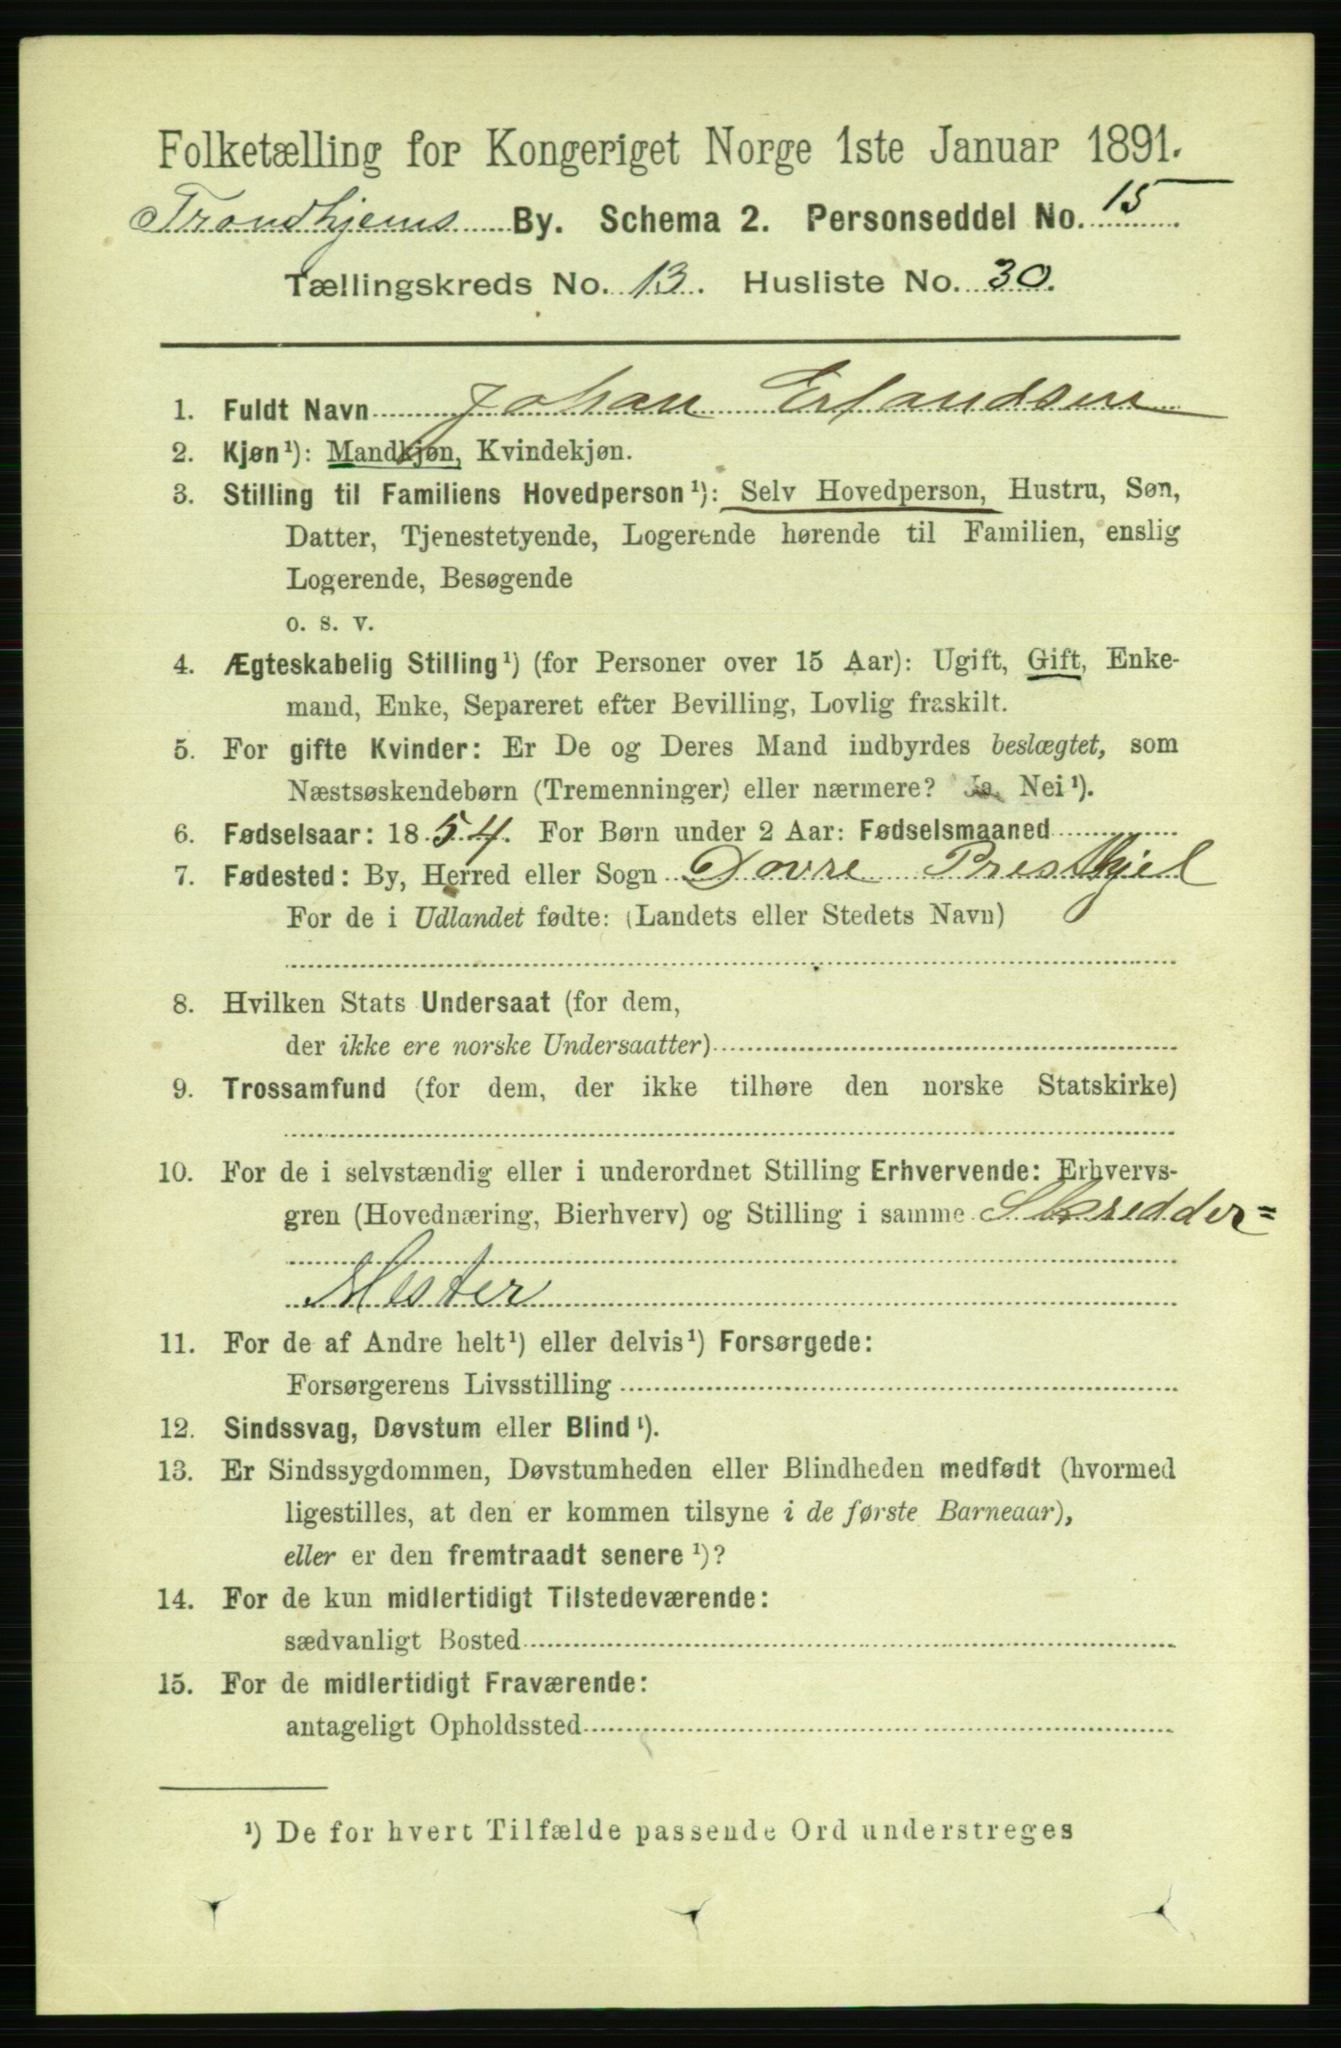 Folketælling for Kongeriget Norge 1ste Januar 1891.
Trondhjems By. Schema 2. Personseddel No. 15
Tællingskreds No. 13. Husliste No. 30.
1. Fuldt Navn Johan Erlandsen
2. Kjøn¹): Mandkjøn, Kvindekjøn.
3. Stilling til Familiens Hovedperson¹): Selv Hovedperson, Hustru, Søn,
Datter, Tjenestetyende, Logerende hørende til Familien, enslig
Logerende, Besøgende
o. s. v.
4. Ægteskabelig Stilling¹) (for Personer over 15 Aar): Ugift, Gift, Enke-
mand, Enke, Separeret efter Bevilling, Lovlig fraskilt.
5. For gifte Kvinder: Er De og Deres Mand indbyrdes beslægtet, som
Næstsøskendebørn (Tremenninger) eller nærmere? Ja, Nei¹).
6. Fødselsaar: 1854. For Børn under 2 Aar: Fødselsmaaned
7. Fødested: By, Herred eller Sogn Dovre Presthjel
For de i Udlandet fødte: (Landets eller Stedets Navn)
8. Hvilken Stats Undersaat (for dem,
der ikke ere norske Undersaatter)
9. Trossamfund (for dem, der ikke tilhøre den norske Statskirke)
10. For de i selvstændig eller i underordnet Stilling Erhvervende: Erhvervs-
gren (Hovednæring, Bierhverv) og Stilling i samme Skredder=
Mester
11. For de af Andre helt¹) eller delvis¹) Forsørgede:
Forsørgerens Livsstilling
12. Sindssvag, Døvstum eller Blind¹).
13. Er Sindssygdommen, Døvstumheden eller Blindheden medfødt (hvormed
ligestilles, at den er kommen tilsyne i de første Barneaar),
eller er den fremtraadt senere¹)?
14. For de kun midlertidigt Tilstedeværende:
sædvanligt Bosted
15. For de midlertidigt Fraværende:
antageligt Opholdssted
¹) De for hvert Tilfælde passende Ord understreges